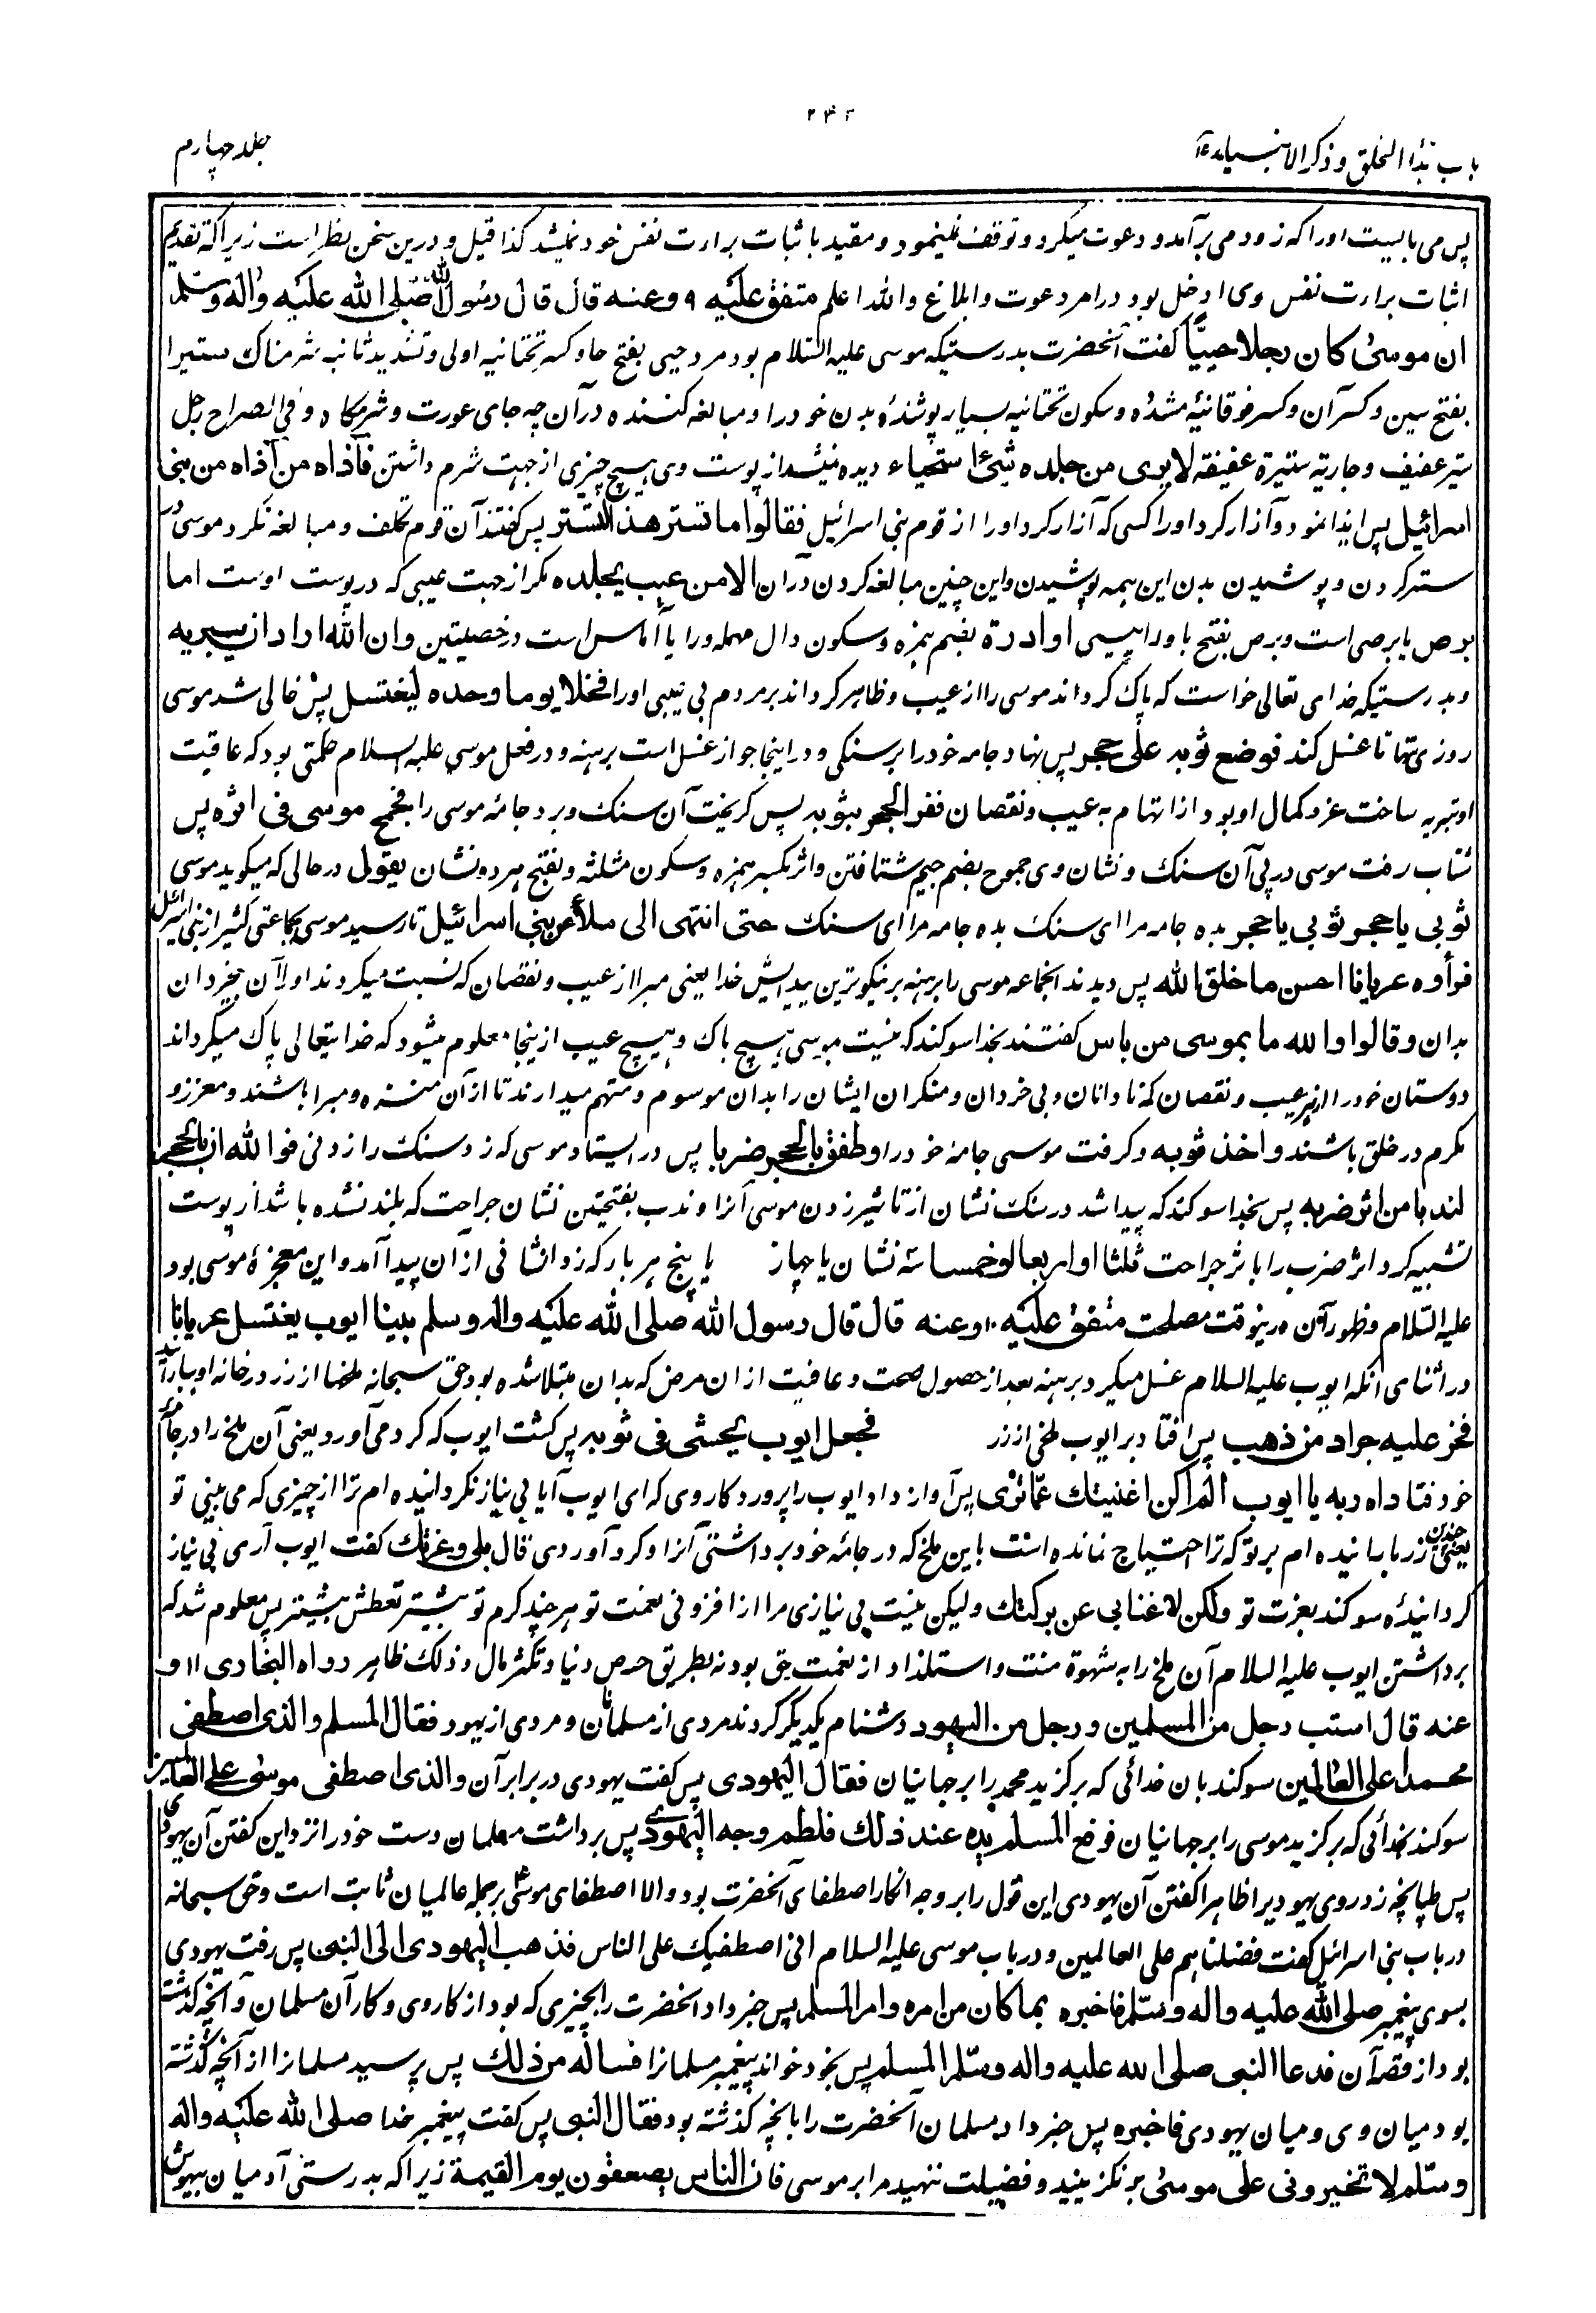 باب بدء الخلق و ذکر الانبیاء
جلد چهارم
پس می بایست اورا که زود می برآمد و دعوت میکرد و توقف نمینمود و مقید با ثبات براءت نفس خود نمیشد کذا قیل و درین سخن نظر است زیرا که تقدیم
اثبات براءت نفس وی ادخل بود در امر دعوت و ابلاغ والله اعلم متفق علیه ۹ وعنه قال قال رسول الله صلی الله علیه واله وسلم
ان موسی کان رجلا حییا گفت آنحضرت بدرستیکه موسی علیه السلام بود مرد حیی بفتح حا و کسر تحتانیه اولی و تشدید ثانیه شرمناک ستیرا
بفتح سین و کسر آن و کسر فوقانیهٔ مشدده و سکون تحتانیه بسیار پوشندهٔ بدن خود را و مبالغه کننده در آن چه جای عورت و شرمگاه و فی الصراح رجل
ستیر عفیف و جاریة ستیرة عفیفة لا یری من جلده شیٔ استحیاء دیده نمیشد از پوست وی هیچ چیزی از جهت شرم داشتن فآذاه من آذاه من بنی
اسرائیل پس ایذا نمود و آزار کرد اورا کسی که آزار کرد اورا از قوم بنی اسرائیل فقالوا ما تستر هذا التستر پس گفتند آن قوم تکلف و مبالغه نکرد موسی در
ستر کردن و پوشیدن بدن این همه پوشیدن و این چنین مبالغه کردن در آن الا من عیب بجلده مگر از جهت عیبی که در پوست اوست اما
برص یا برصی است و برص بفتح با و را پیسی او ادرة بضم همزه و سکون دال مهمله و را یا آماس است در خصیتین وان الله اراد ان یبریه
و بدرستیکه خدای تعالی خواست که پاک گرداند موسی را از عیب و ظاهر گرداند بر مردم بی عیبی اورا فخلا یوما وحده لیغتسل پس خالی شد موسی
روزی تنها تا غسل کند فوضع ثوبه علی حجر پس نهاد جامه خود را بر سنگی و در اینجا جواز غسل است برهنه و در فعل موسی علیه السلام حکمتی بود که عاقبت
او تبریه ساخت عز و کمال او بود از اتهام به عیب و نقصان ففر الحجر بثوبه پس گریخت آن سنگ و برد جامهٔ موسی را فجمح موسی فی اثره پس
شتاب رفت موسی در پی آن سنگ و نشان وی جموح بضم جیم شتافتن و اثر بکسر همزه و سکون مثلثه و بفتح هر دو نشان یقول در حالی که میگوید موسی
ثوبی یا حجر ثوبی یا حجر بده جامه مرا ای سنگ بده جامه مرا ای سنگ حتی انتهی الی ملأ من بنی اسرائیل تا رسید موسی بجماعتی کثیر از بنی اسرائیل
فرأوه عریانا احسن ما خلق الله پس دیدند آنجماعه موسی را برهنه بر نیکوترین پیدایش خدا یعنی مبرا از عیب و نقصان که نسبت میکردند اورا آن بیخردان
بدان وقالوا والله ما بموسی من باس گفتند بخدا سوگند که نیست بموسی هیچ باک و هیچ عیب از ینجا معلوم میشود که خدایتعالی پاک میگرداند
دوستان خود را از هر عیب و نقصان که نادانان و بی خردان و منکران ایشان را بدان موسوم و متهم میدارند تا از آن منزه و مبرا باشند و معزز و
مکرم در خلق باشند واخذ ثوبه و گرفت موسی جامهٔ خود را وطفق بالحجر ضربا پس در ایستاد موسی که زد سنگ را زدنی فوالله ان بالحجر
لندبا من اثر ضربه پس بخدا سوگند که پیدا شد در سنگ نشان از تاثیر زدن موسی آنرا و ندب بفتحتین نشان جراحت که بلند نشده باشد از پوست
تشبیه کرد اثر ضرب را باثر جراحت ثلثا او اربعا او خمسا سه نشان یا چهار یا پنج هر بار که زد نشانی از ان پیدا آمد و این معجزهٔ موسی بود
علیه السلام و ظهور آن درینوقت مصلحت متفق علیه ۱۰ وعنه قال قال رسول الله صلی الله علیه واله وسلم بینا ایوب یغتسل عریانا
در اثنای آنکه ایوب علیه السلام غسل میکرد برهنه بعد از حصول صحت و عافیت از ان مرض که بدان مبتلا شده بود حق سبحانه ملخها از زر در خانه او بارانید
فخر علیه جراد من ذهب پس افتاد بر ایوب ملخی از زر فجعل ایوب یحثی فی ثوبه پس گشت ایوب که گرد می آورد یعنی آن ملخ را در جامهٔ
خود فناداه ربه یا ایوب الم اکن اغنیتک عما تری پس آواز داد ایوب را پروردگار وی که ای ایوب آیا بی نیاز نگردانیده ام ترا از چیزی که می بینی تو
یعنی چندین زر بارانیده ام بر تو که ترا احتیاج نمانده است باین ملخ که در جامهٔ خود برداشتی آنرا و گرد آوردی قال بلی وعزتک گفت ایوب آری بی نیاز
گردانیدهٔ سوگند بعزت تو ولکن لا غنا بی عن برکتک ولیکن نیست بی نیازی مرا از افزونی نعمت تو هر چند کرم تو بیشتر تعطش بیشتر پس معلوم شد که
برداشتن ایوب علیه السلام آن ملخ را به شهوة منت و استلذاذ از نعمت حق بود نه بطریق حرص دنیا و تکثر مال و ذلک ظاهر رواه البخاری ۱۱ و
عنه قال استب رجل من المسلمین ورجل من الیهود دشنام یکدیگر کردند مردی از مسلمانان و مردی از یهود فقال المسلم والذی اصطفی
محمدا علی العالمین سوگند بان خدائی که برگزید محمد را بر جهانیان فقال الیهودی پس گفت یهودی در برابر آن والذی اصطفی موسی علی العالمین
سوگند بخدائی که برگزید موسی را بر جهانیان فرفع المسلم یده عند ذلک فلطم وجه الیهودی پس برداشت مسلمان دست خود را نزد این گفتن آن یهودی
پس طپانچه زد روی یهودی را ظاهرا گفتن آن یهودی این قول را بر وجه انکار اصطفای آنحضرت بود والا اصطفای موسی بر جمله عالمیان ثابت است و حق سبحانه
در باب بنی اسرائیل گفت فضلناهم علی العالمین و در باب موسی علیه السلام انی اصطفیتک علی الناس فذهب الیهودی الی النبی پس رفت یهودی
بسوی پیغمبر صلی الله علیه واله وسلم فاخبره بما کان من امره وامر المسلم پس خبر داد آنحضرت را بچیزی که بود از کار وی و کار آن مسلمان و آنچه گذشته
بود از قصه آن فدعا النبی صلی الله علیه واله وسلم المسلم پس بخود خواند پیغمبر مسلمانرا فساله من ذلک پس پرسید مسلمانرا از آنچه گذشته
بود میان وی و میان یهودی فاخبره پس خبر داد مسلمان آنحضرت را بانچه گذشته بود فقال النبی پس گفت پیغمبر خدا صلی الله علیه واله
وسلم لا تخیرونی علی موسی برنگزینید و فضیلت ننهید مرا بر موسی فان الناس یصعقون یوم القیمة زیرا که بدرستی آدمیان بیهوش